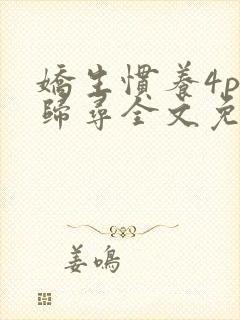 嬌生慣養4p
歸尋全文免
姜鳴